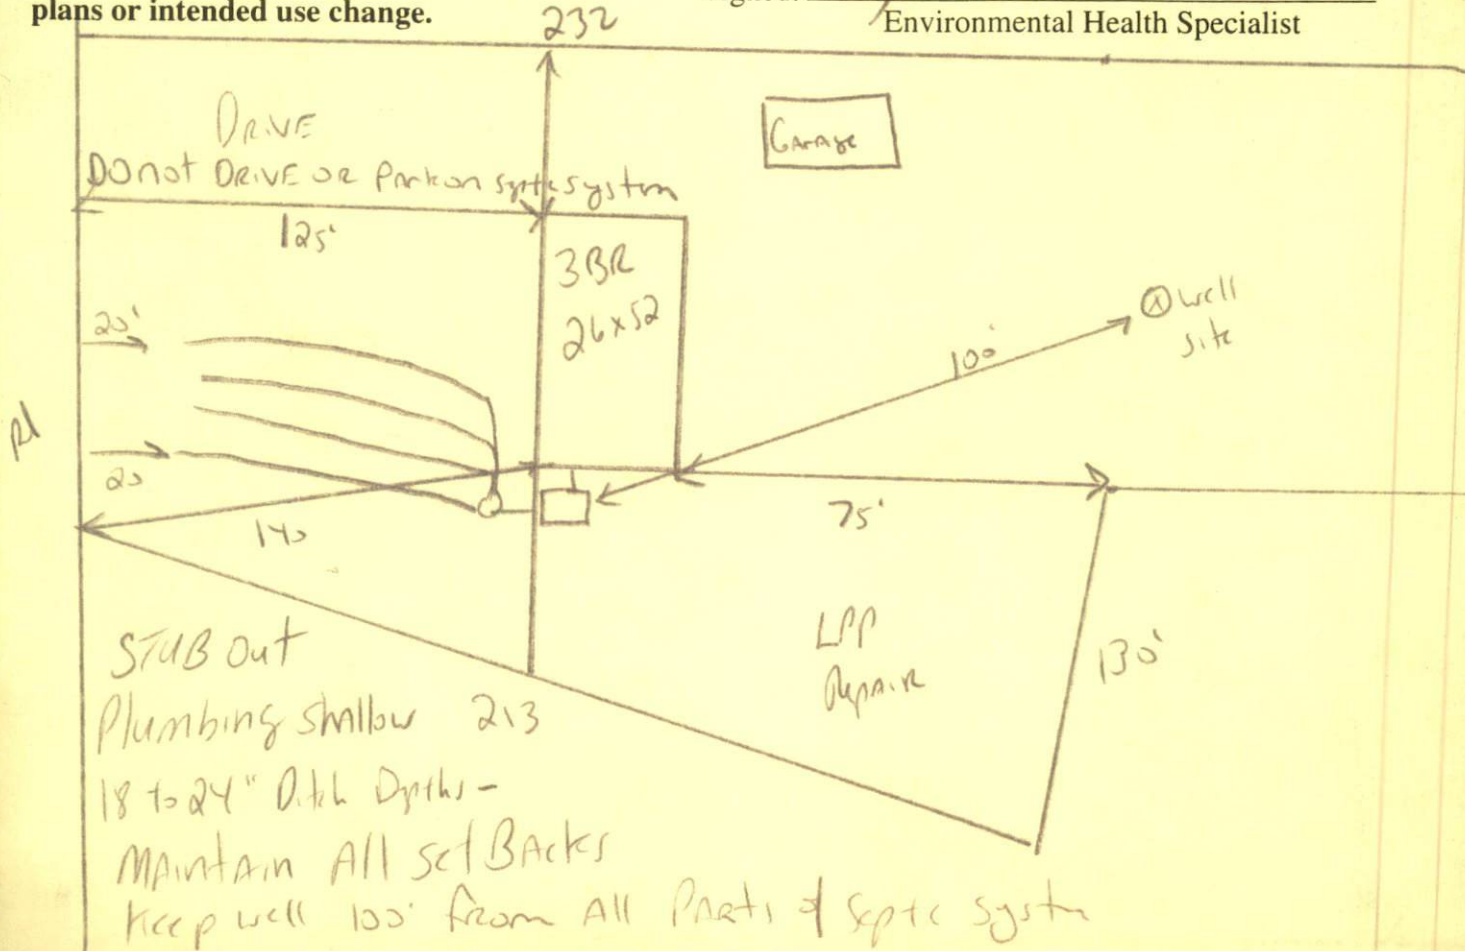 plans or intended use change.
Environmental Health Specialist
232
DRIVE
GARAGE
DO not DRIVE OR Park on septic system
125'
3BR
26x52
20'
well
site
100'
20
75'
140
LPP
Repair
130'
STUB Out
Plumbing shallow 213
18 to 24" Ditch Depths -
MAintAin All SetBAcks
Keep well 100' from All Parts of Septc System